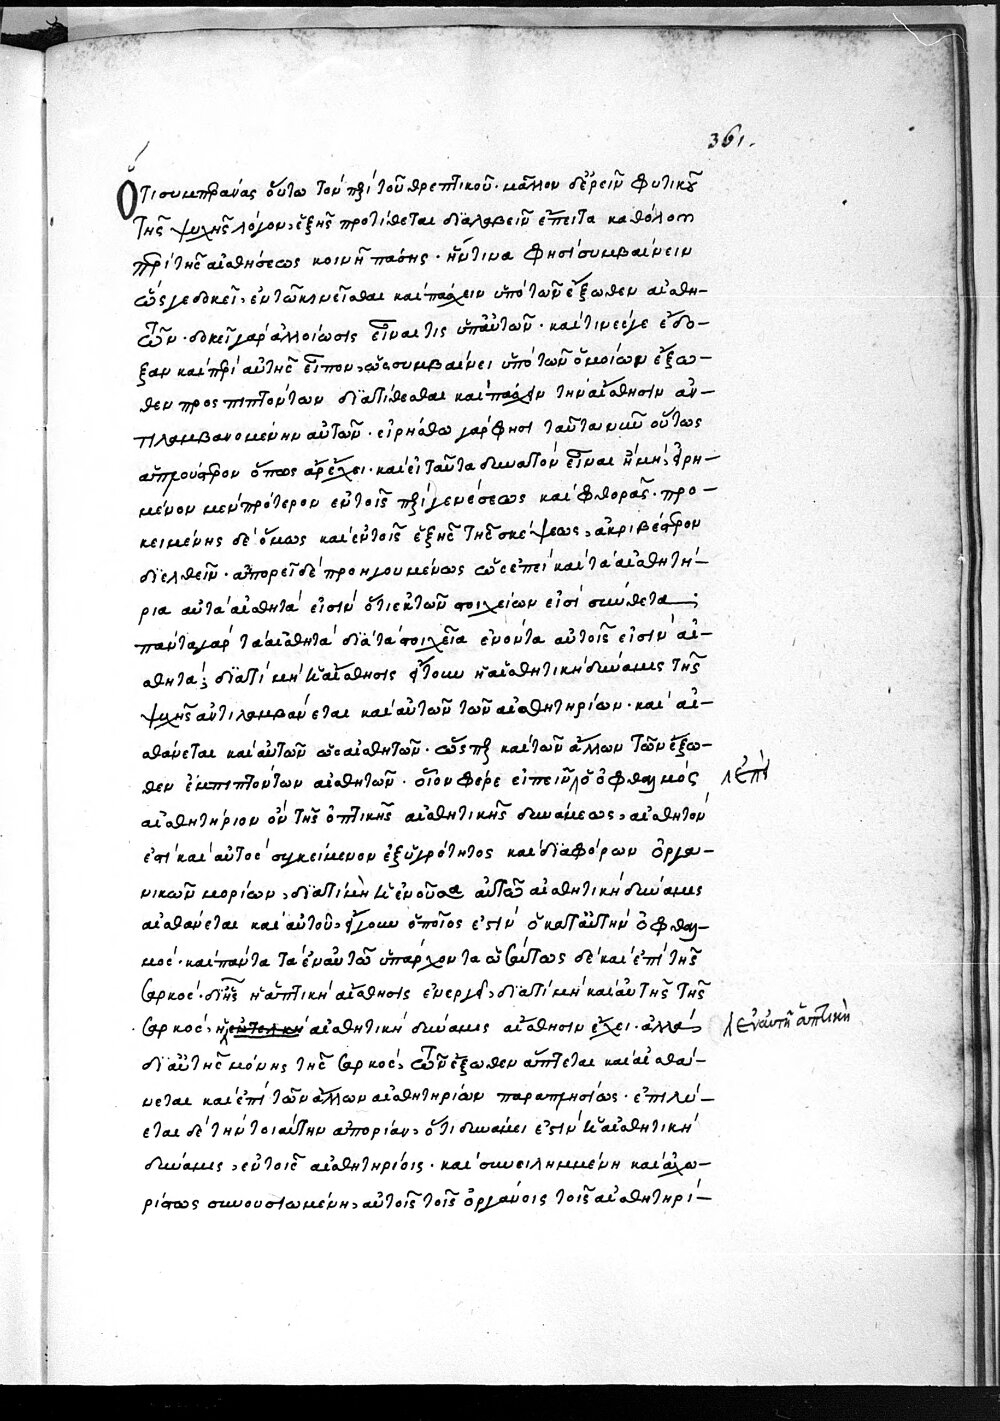 361.
Ὅτι συμπεράνας οὕτω τὸν περὶ τοῦ θρεπτικοῦ· μᾶλλον δ' ἐρεῖν φυτικοῦ
τῆς ψυχῆς λόγον, ἑξῆς προτίθεται διαλαβεῖν ἔπειτα καθόλου
περὶ τῆς αἰσθήσεως κοινῇ πάσης· ἥντινα φησὶ συμβαίνειν
ὥς γε δοκεῖ, ἐν τῷ κινεῖσθαι καὶ πάσχειν ὑπὸ τῶν ἔξωθεν αἰσθη-
τῶν· δοκεῖ γὰρ ἀλλοίωσις εἶναί τις ὑπ' αὐτῶν· καὶ τινές γε ἔδο-
ξαν καὶ περὶ αὐτῆς εἶπον, ὡς συμβαίνει ὑπὸ τῶν ὁμοίων ἔξω-
θεν προσπιπτόντων διατίθεσθαι καὶ πάσχειν τὴν αἴσθησιν ἀν-
τιλαμβανομένην αὐτῶν· εἰρήσθω γάρ φησι ταῦτα νῦν οὕτως
ἁπλούστερον ὅπως ἄρ' ἔχει· καὶ εἰ ταῦτα δυνατὸν εἶναι ἢ μὴ, εἰρη-
μένον μὲν πρότερον ἐν τοῖς περὶ γενέσεως καὶ φθορᾶς· προ-
κειμένης δὲ ὅμως καὶ ἐν τοῖς ἑξῆς τῆς σκέψεως, ἀκριβέστερον
διελθεῖν· ἀπορεῖ δὲ προηγουμένως ὡς ἐπεὶ καὶ τὰ αἰσθητή-
ρια αὐτὰ αἰσθητά εἰσιν ὅτι ἐκ τῶν στοιχείων εἰσὶ σύνθετα
πάντα γὰρ τὰ αἰσθητὰ διὰ τὰ στοιχεῖα ἐνόντα αὐτοῖς εἰσὶν αἰ-
σθητά; διατί μὴ ἡ αἴσθησις ἤτοι ἡ αἰσθητικὴ δύναμις τῆς
ψυχῆς ἀντιλαμβάνεται καὶ αὐτῶν τῶν αἰσθητηρίων· καὶ αἰ-
σθάνεται καὶ αὐτῶν ὡς αἰσθητῶν· ὥσπερ καὶ τῶν ἄλλων τῶν ἔξω-
θεν ἐμπιπτόντων αἰσθητῶν· οἷον φέρε εἰπεῖν ὁ ὀφθαλμός
αἰσθητήριον ὂν τῆς ὀπτικῆς αἰσθητικῆς δυνάμεως, αἰσθητόν
ἐστι καὶ αὐτὸς συγκείμενον ἐξ ὑγρότητος καὶ διαφόρων ὀργα-
νικῶν μορίων, διατί μὴ ἡ ἐνοῦσα αὐτῷ αἰσθητικὴ δύναμις
αἰσθάνεται καὶ αὐτοῦ, ἤγουν ὁποῖος ἐστὶν ὁ κατ' αὐτὴν ὀφθαλ-
μός· καὶ πάντα τὰ ἐν αὐτῷ ὑπάρχοντα ὡσαύτως δὲ καὶ ἐπὶ τῆς
σαρκός· δι' ἧς ἡ ἁπτικὴ αἴσθησις ἐνεργεῖ, διατί μὴ καὶ αὐτῆς τῆς
σαρκός, ἡ αἰσθητικὴ δύναμις αἴσθησιν ἔχει· ἀλλὰ
δι' αὐτῆς μόνης τῆς σαρκός, τῶν ἔξωθεν ἅπτεται καὶ αἰσθά-
νεται καὶ ἐπὶ τῶν ἄλλων αἰσθητηρίων παραπλησίως· ἐπιλύ-
εται δὲ τὴν τοιαύτην ἀπορίαν, ὅτι δυνάμει ἐστὶν ἡ αἰσθητικὴ
δύναμις, ἐν τοῖς αἰσθητηρίοις· καὶ συνειλημμένη καὶ ἀχω-
ρίστως συνουσιωμένη, αὐτοῖς τοῖς ὀργάνοις τοῖς αἰσθητηρί-
ἐν αὐτῇ ἁπτικὴ